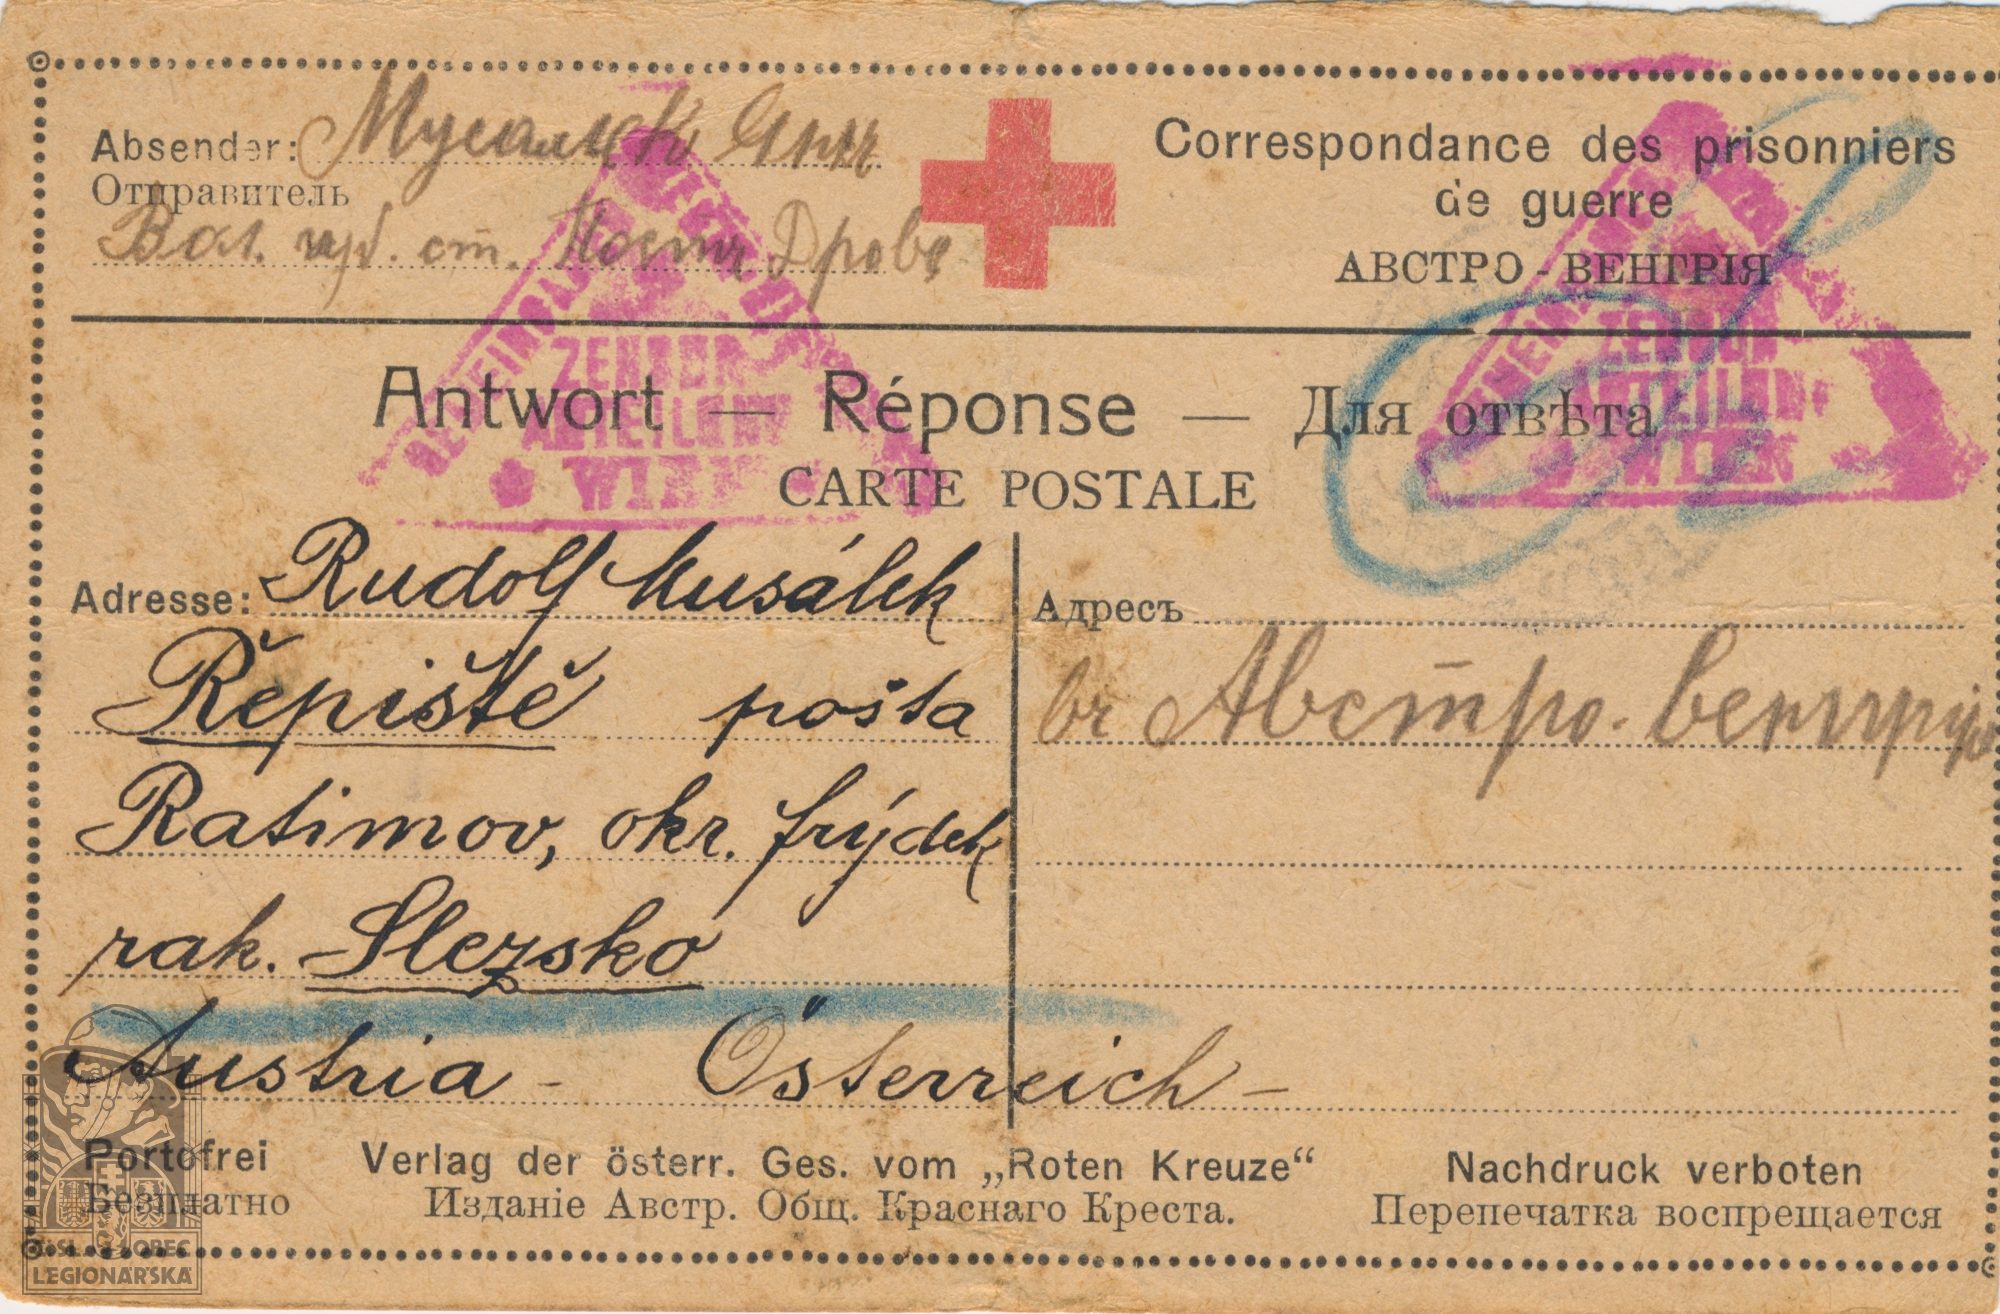 Absender: Мусалекъ Янъ
Отправитель
Вол. губ. ст.
Correspondance des prisonniers
de guerre
АВСТРО - ВЕНГРІЯ
Antwort — Réponse — Для отвѣта
CARTE POSTALE
ZENSUR-
ABTEILUNG
WIEN
ZENSUR-
ABTEILUNG
WIEN
Adresse: Rudolf Musálek
Řepiště pošta
Ratimov, okr. frýdek
rak. - Slezsko
Austria - Österreich -
Адресъ
въ Австро-Венгрію
Portofrei
Безплатно
Verlag der österr. Ges. vom „Roten Kreuze“
Изданіе Австр. Общ. Краснаго Креста.
Nachdruck verboten
Перепечатка воспрещается
ČSL. OBEC
LEGIONÁŘSKÁ